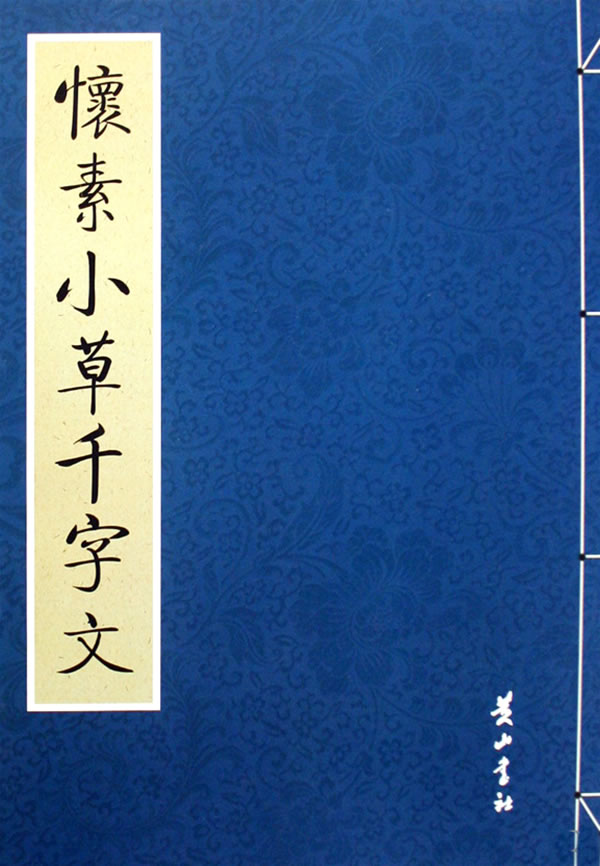 懷素小草千字文
黄山書社